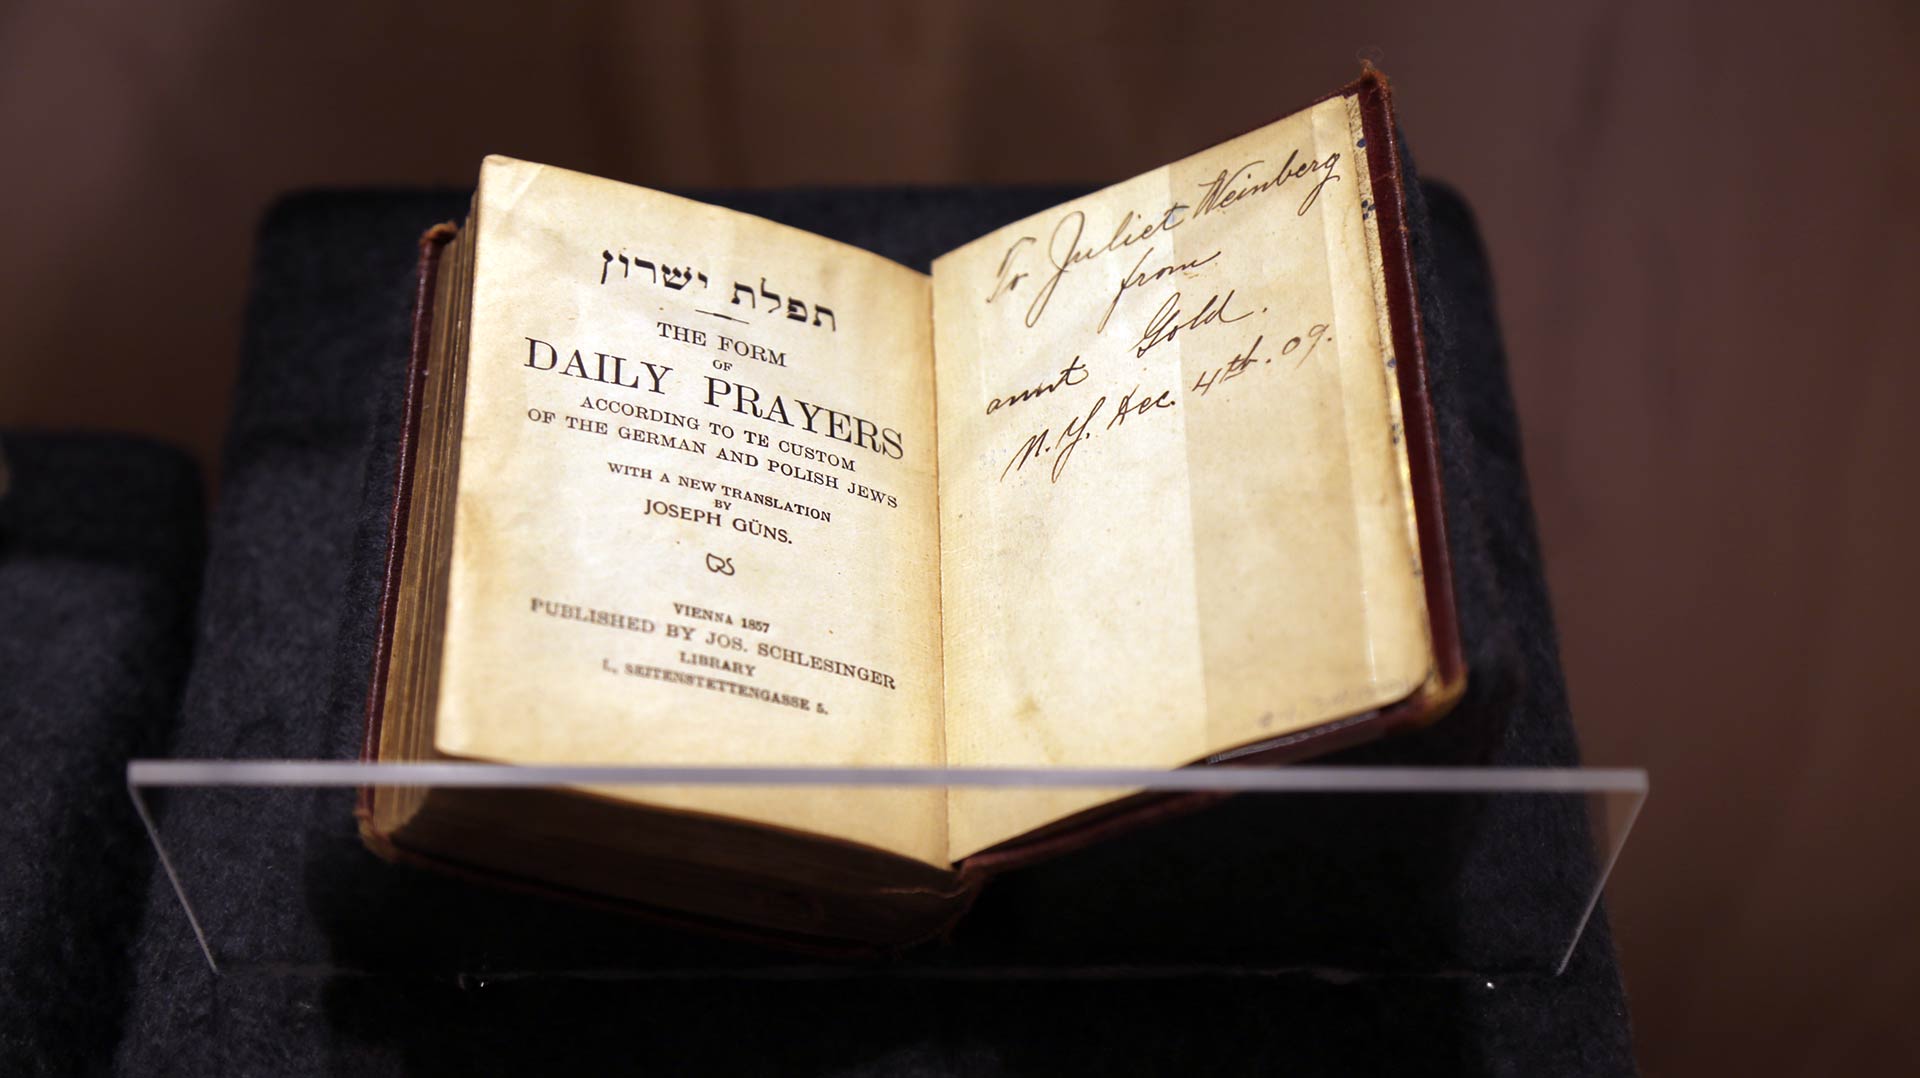 תפלת ישרון
THE FORM
OF
DAILY PRAYERS
ACCORDING TO TE CUSTOM
OF THE GERMAN AND POLISH JEWS
WITH A NEW TRANSLATION
BY
JOSEPH GÜNS.
VIENNA 1857
PUBLISHED BY JOS. SCHLESINGER
LIBRARY
I., SEITENSTETTENGASSE 5.
To Juliet Weinberg
from
aunt Gold.
N.Y. Dec. 4th. 09.